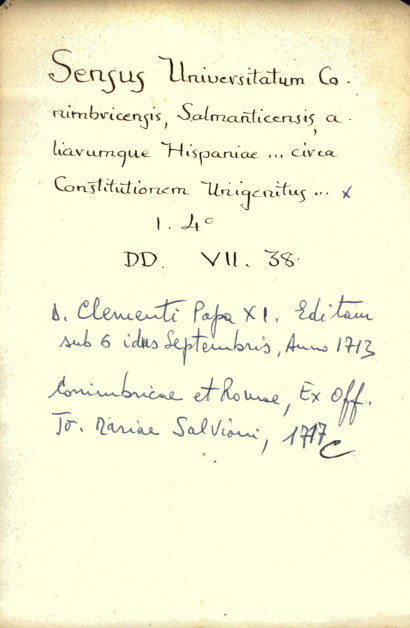 Sensus Universitatum Co-
nimbricensis, Salmanticensis, a-
liarumque Hispaniae ... circa
Constitutionem Unigenitus ... x
1. 4°
DD. VII. 38.
D. Clementi Papa XI. Editam
sub 6 idus Septembris, Anno 1713
Conimbricae et Romae, Ex Off.
Jo. Mariae Salvioni, 1717